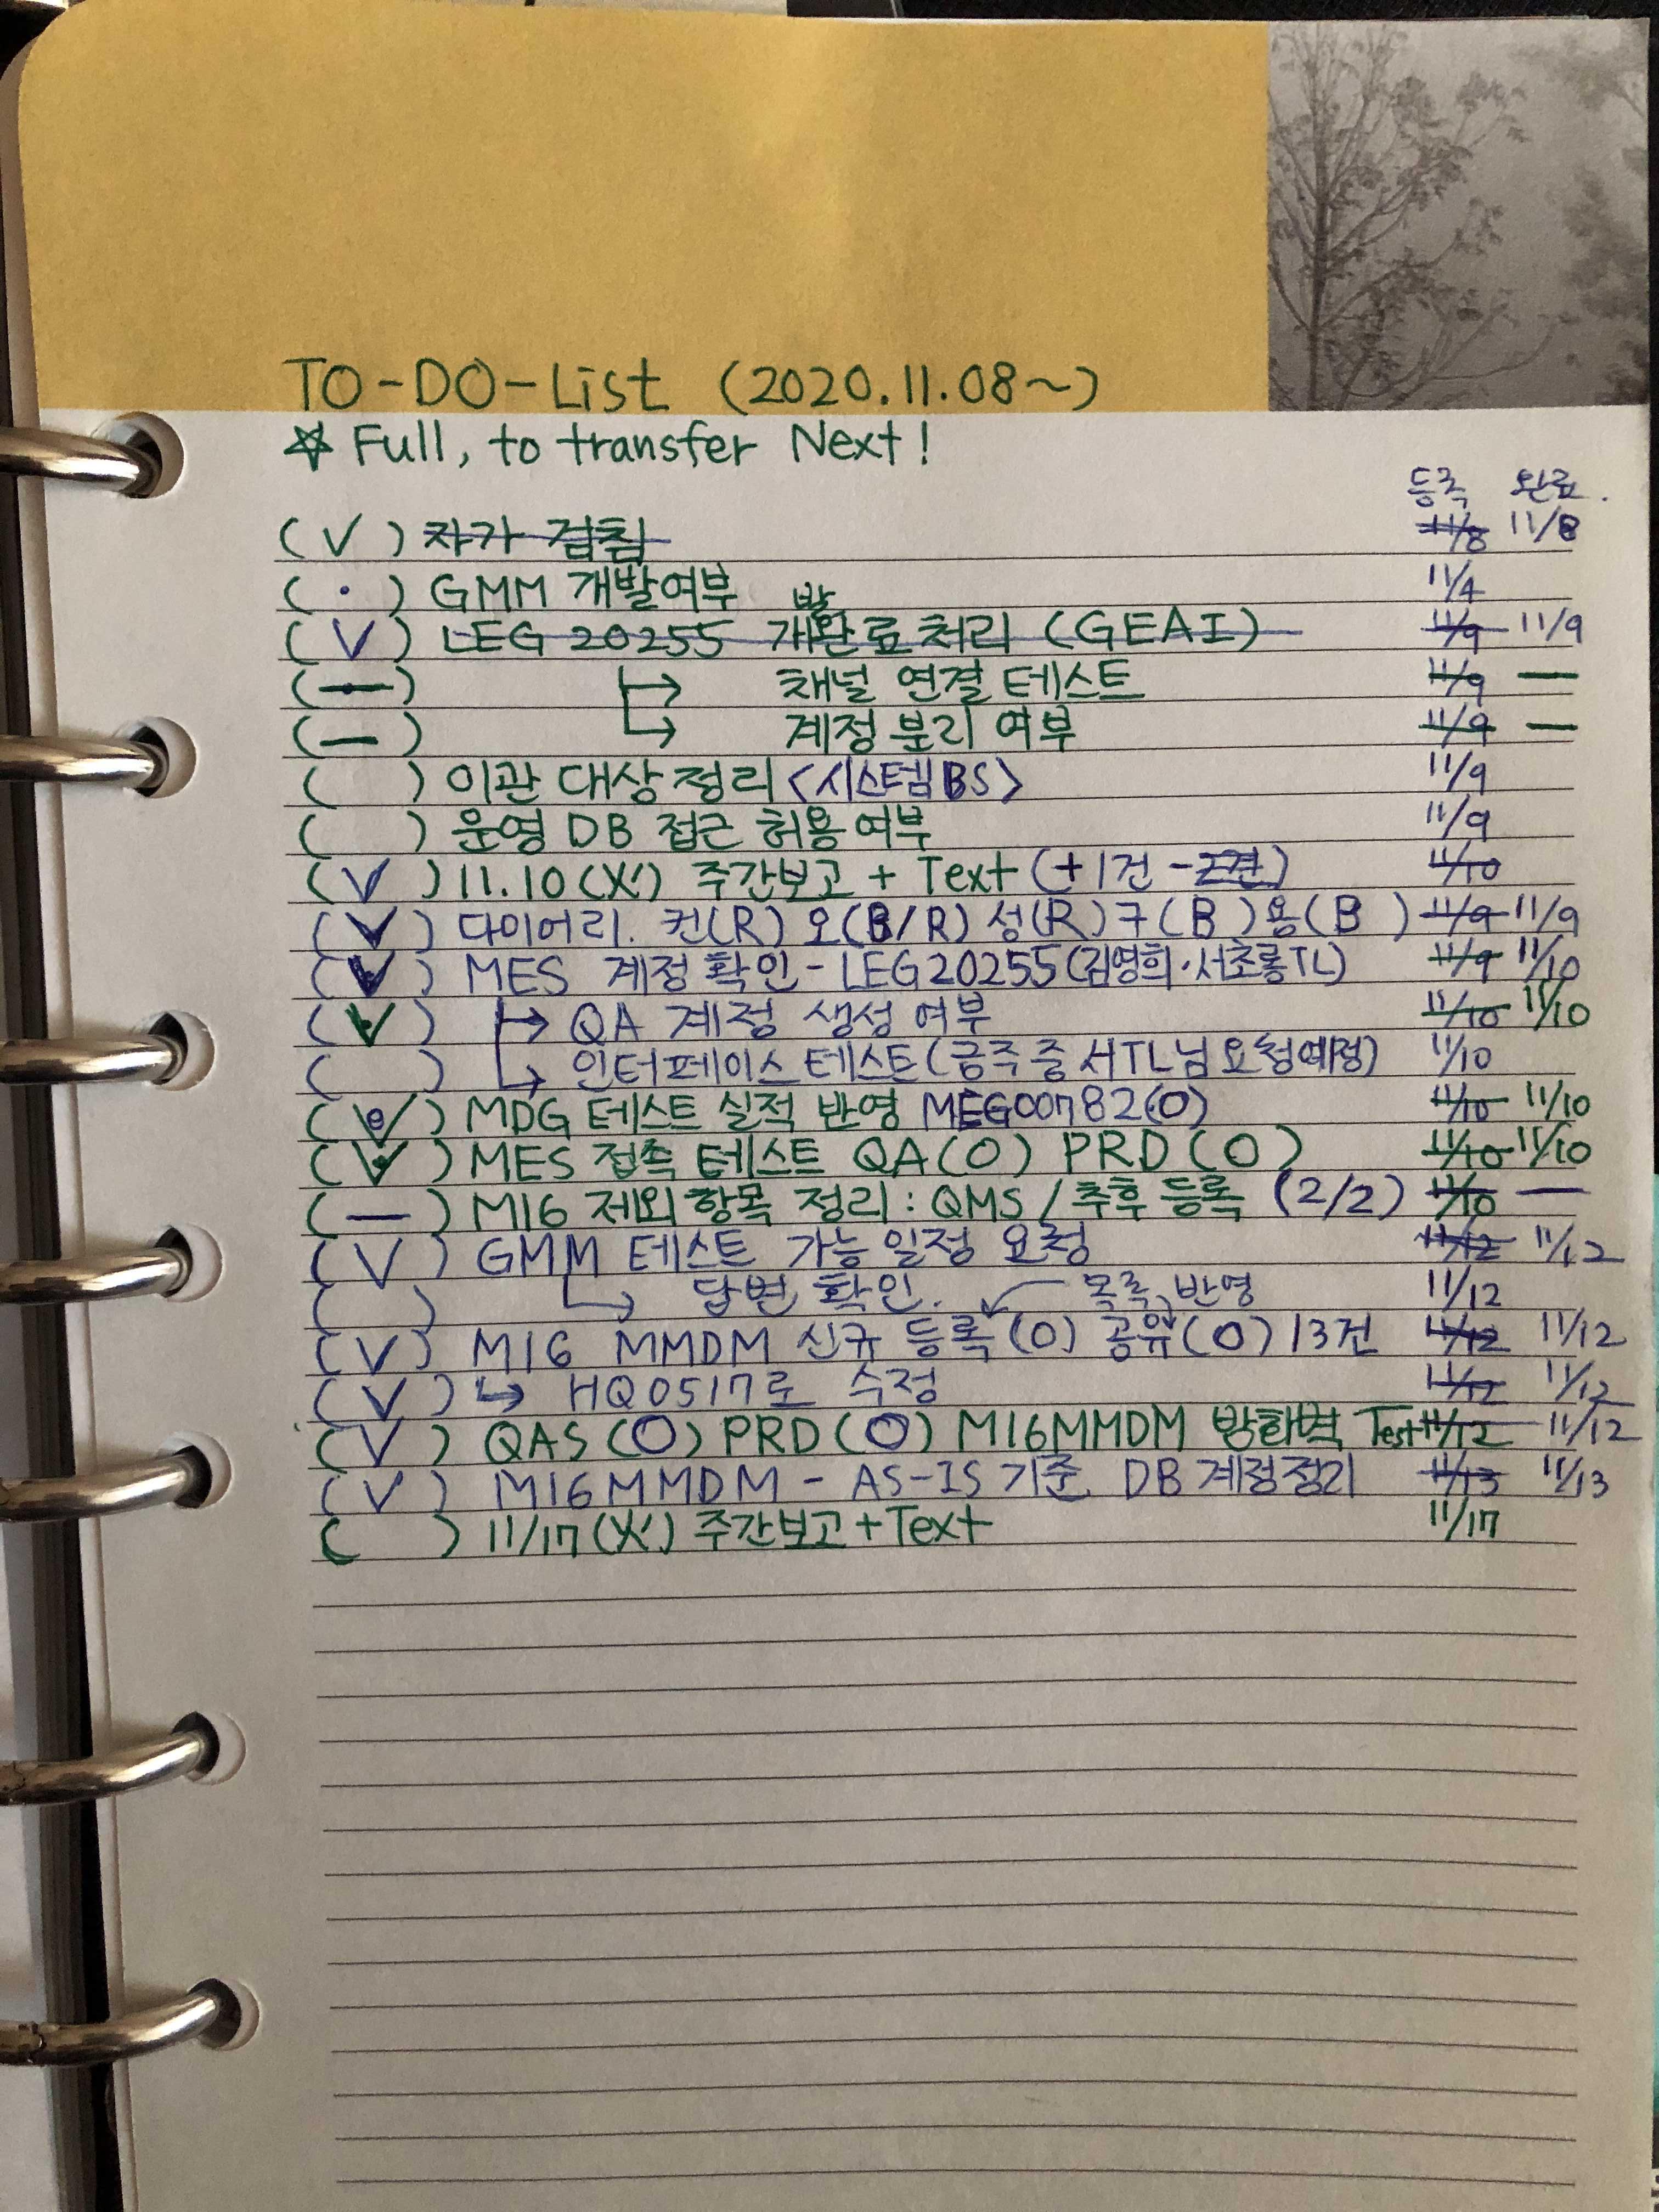 TO-DO-List (2020.11.08~)
☆ Full, to transfer Next!
등록 완료.
(V) 자가 검침 11/8 11/8
(·) GMM 개발여부 11/4
(V) LEG 20255 개발완료처리 (GEAI) 11/9 11/9
(—) ↳ 채널 연결 테스트 11/9 —
(—) ↳ 계정 분리 여부 11/9 —
( ) 이관 대상 정리 <시스템BS> 11/9
( ) 운영 DB 접근 허용여부 11/9
(V) 11.10(火) 주간보고 + Text (+1건 -2건) 11/10
(V) 다이어리. 컨(R) 오(B/R) 성(R) 구(B) 용(B) 11/9 11/9
(V) MES 계정 확인 - LEG20255 (김영희·서초롱TL) 11/9 11/10
(V) ↳ QA 계정 생성 여부 11/10 11/10
( ) ↳ 인터페이스 테스트 (금주 중 서TL님 요청예정) 11/10
(V) MDG 테스트 실적 반영 MEG00782(O) 11/10 11/10
(V) MES 접속 테스트 QA(O) PRD(O) 11/10 11/10
(—) M16 제외 항목 정리 : QMS / 추후 등록 (2/2) 11/10 —
(V) GMM 테스트 가능 일정 요청 11/12 11/12
( ) ↳ 답변 확인. 목록 반영 11/12
(V) M16 MMDM 신규 등록(O) 공유(O) 13건 11/12 11/12
(V) ↳ HQ0517로 수정 11/12 11/12
(V) QAS(O) PRD(O) M16MMDM 방화벽 Test 11/12 11/12
(V) M16MMDM - AS-IS 기준 DB 계정정리 11/13 11/13
( ) 11/17(火) 주간보고 + Text 11/17